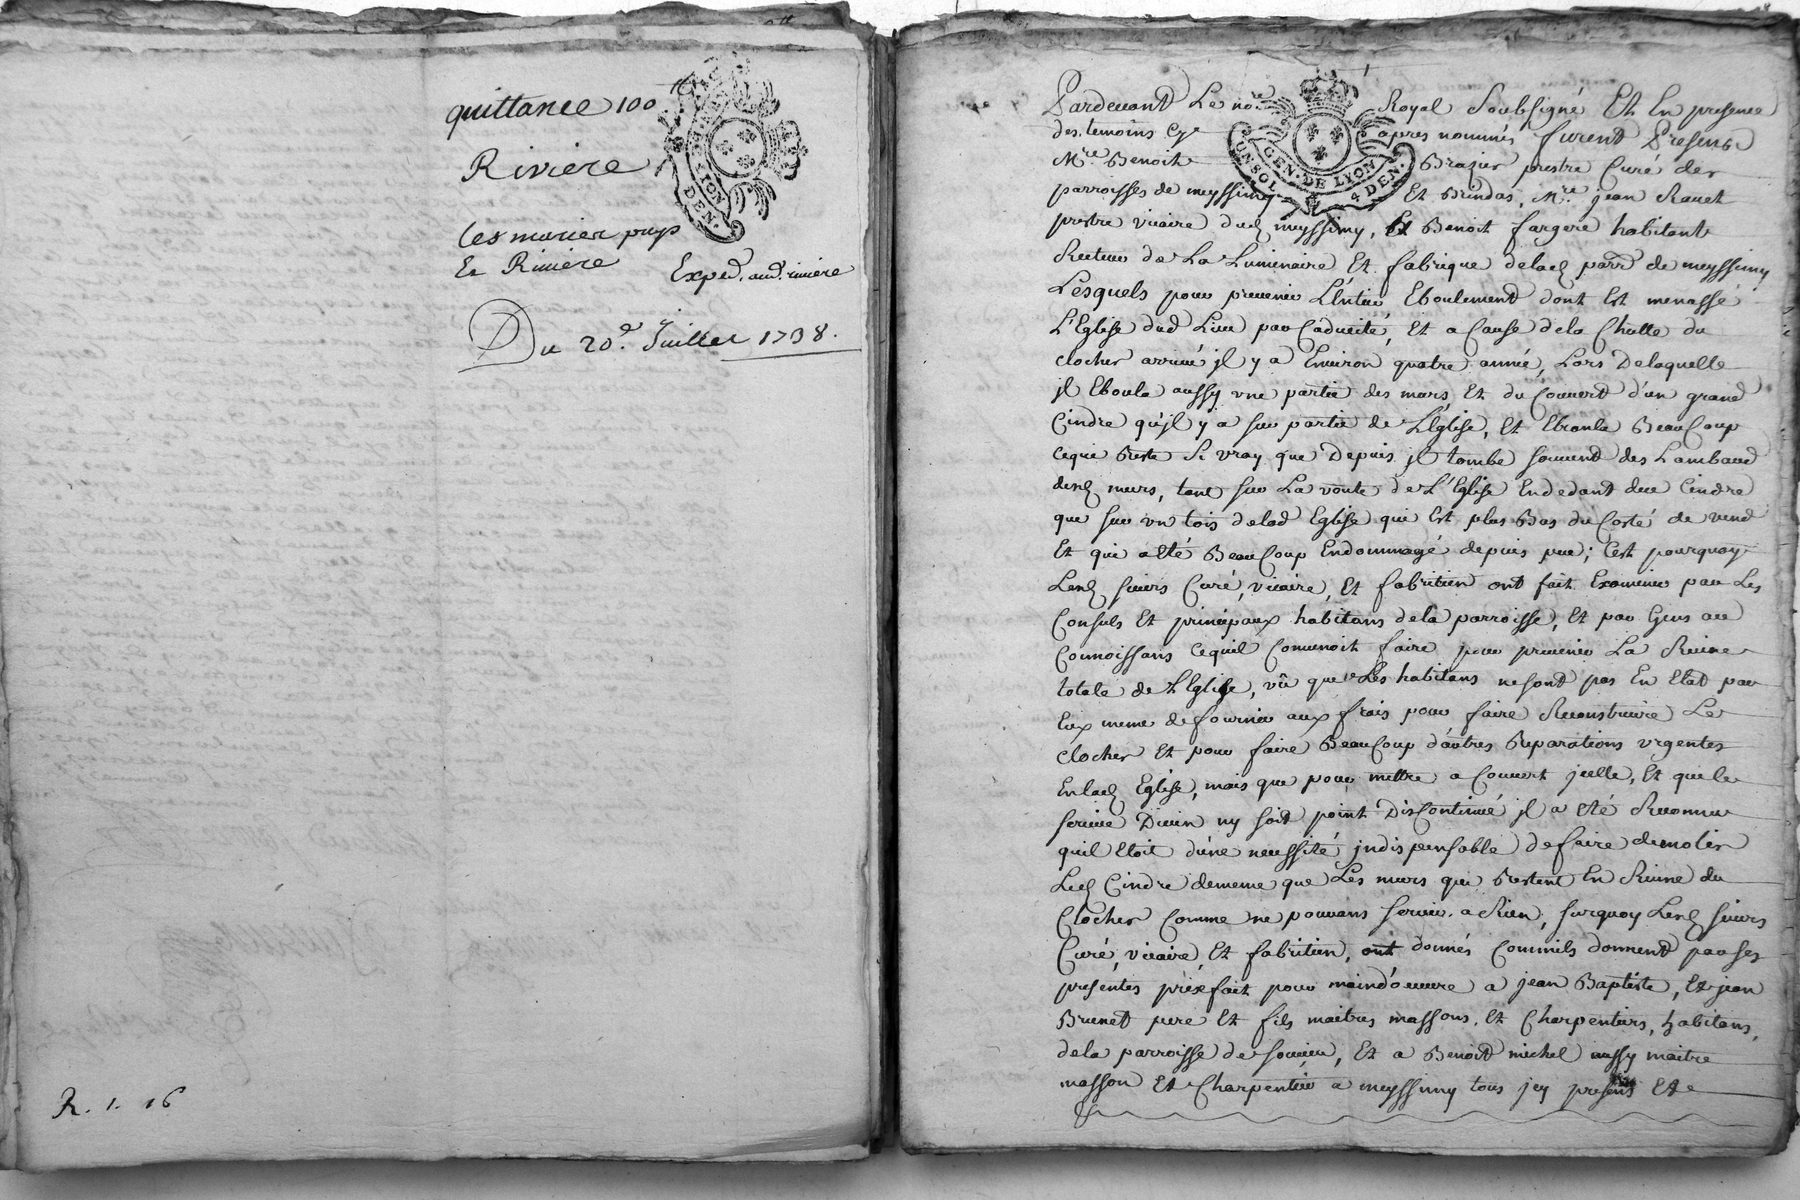 quittance 100 tt
Riviere
les marier puys
Et Riviere
Exped. aud. riviere
Du 20e. Juillet 1738.
R. 1. 16
GEN. DE LYON
DEN.
Pardevant Le nore Royal Soubsigné Et En presence
des temoins Cy apres nommés furent Presens
Mre Benoit Brazier prestre Curé des
parroisses de meyssimy Et Brindas, Mre jean Ravet
prestre vicaire dud meyssimy, Et Benoit fargere habitant
Recteur de La Luminaire Et fabrique delad parr de meyssimy
Lesquels pour prevenir L'Entier Eboulement dont Est menassé
L'Eglise dud Lieu par Caducité, Et a Cause dela Chutte du
clocher arrivé jl y a Environ quatre année, Lors Delaquelle
jl Eboula aussy une partie des murs, Et du Couvert d'un grand
Cindre qu'jl y a sur partie de L'Eglise, Et Ebranla BeauCoup
ceque Reste Si vray que Depuis jl tombe souvent des Lambaud
desd murs, tant sur La voute de L'Eglise Endedant dud Cindre
que sur un tois delad Eglise qui Est plus Bas du Costé de vend
Et qui a Eté BeauCoup Endommagé depuis peu; C'est pourquoy
Lesd sieurs Curé, vicaire, Et fabritien ont fait Examiner par Les
Consuls Et principaux habitans dela parroisse, Et par Gens au
Connoissans cequil Convenoit faire pour prevenir La Ruine
totale de L'Eglise, vû que Les habitans ne sont pas En Etat par
Eux meme de fournir aux frais pour faire Reconstruire Le
clocher Et pour faire BeauCoup d'autres Reparations urgentes
Enlad Eglise, mais que pour mettre a Couvert jcelle, Et que le
service Divin ny soit point DisContinué jl a Eté Reconnu
quil Etoit d'une necessité jndispensable de faire demolir
Led Cindre dememe que Les murs qui Restent En Ruine du
Clocher Comme ne pouvans servir a Rien, surquoy Lesd sieurs
Curé, vicaire, Et fabritien, ont donnés Commils donnent par ses
presentes prixfait pour maind'oeuvre a jean Baptiste, Et jean
Brunet pere Et fils maitres massons, Et Charpentiers, habitans,
dela parroisse de Soucieu, Et a Benoit michel aussy maitre
masson Et Charpentier a meyssimy tous jcy presens Et
GEN. DE LYON
UN SOL 4 DEN.